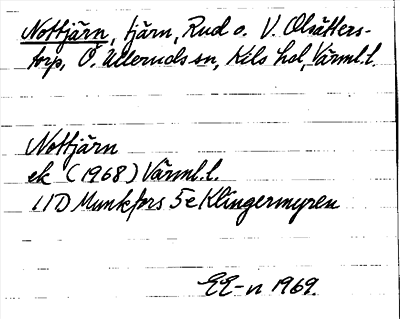 Nottjärn, tjärn, Rud o. V. Olsätters-
torp, Ö. Ulleruds sn, Kils hd, Värml. l.
Nottjärn
ek (1968) Värml. l.
11D Munkfors 5e Klingermyren
EE-n 1969.